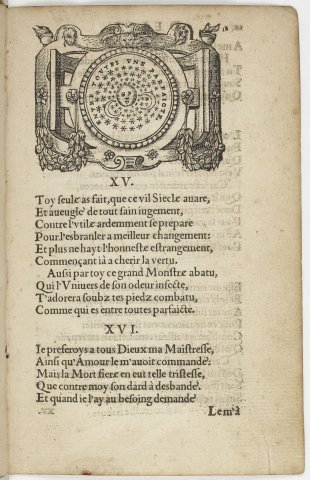 ENTRE TOVTES VNE PARFAICTE.
XV.
Toy seulæ as fait, que ce vil Sieclæ auare,
Et aueuglæ' de tout sain iugement,
Contre l'vtilæ ardemment se prepare
Pour l'esbranler a meilleur changement:
Et plus ne hayt l'honnestæ estrangement,
Commençant ià a cherir la vertu.
Aussi par toy ce grand Monstræ abatu,
Qui l'Vniuers de son odeur infecte,
T'adorera soubz tes piedz combatu,
Comme qui es entre toutes parfaicte.
XVI.
Ie preferoys a tous Dieux ma Maistresse,
Ainsi qu'Amour le m'auoit commandé:
Mais la Mort fieræ en eut telle tristesse,
Que contre moy son dard à desbandé.
Et quand ie l'ay au besoing demandé
Lem'à